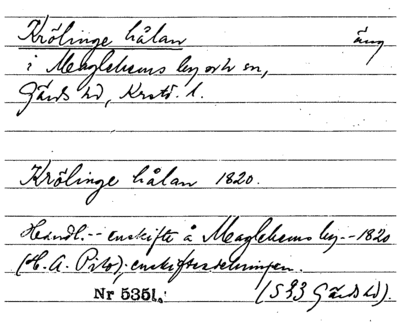 Krölinge hålan äng
i Maglehems by och sn,
Gärds hd, Krstd. l.
Krölinge hålan 1820.
Handl. -- enskifte å Maglehems by -- 1820
(H. A. ); enskiftesdelningen.
Nr 5351. (S 33 Gärds hd).